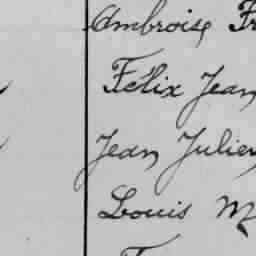 Ambroise Fr
Félix Jean
Jean Julien
Louis M